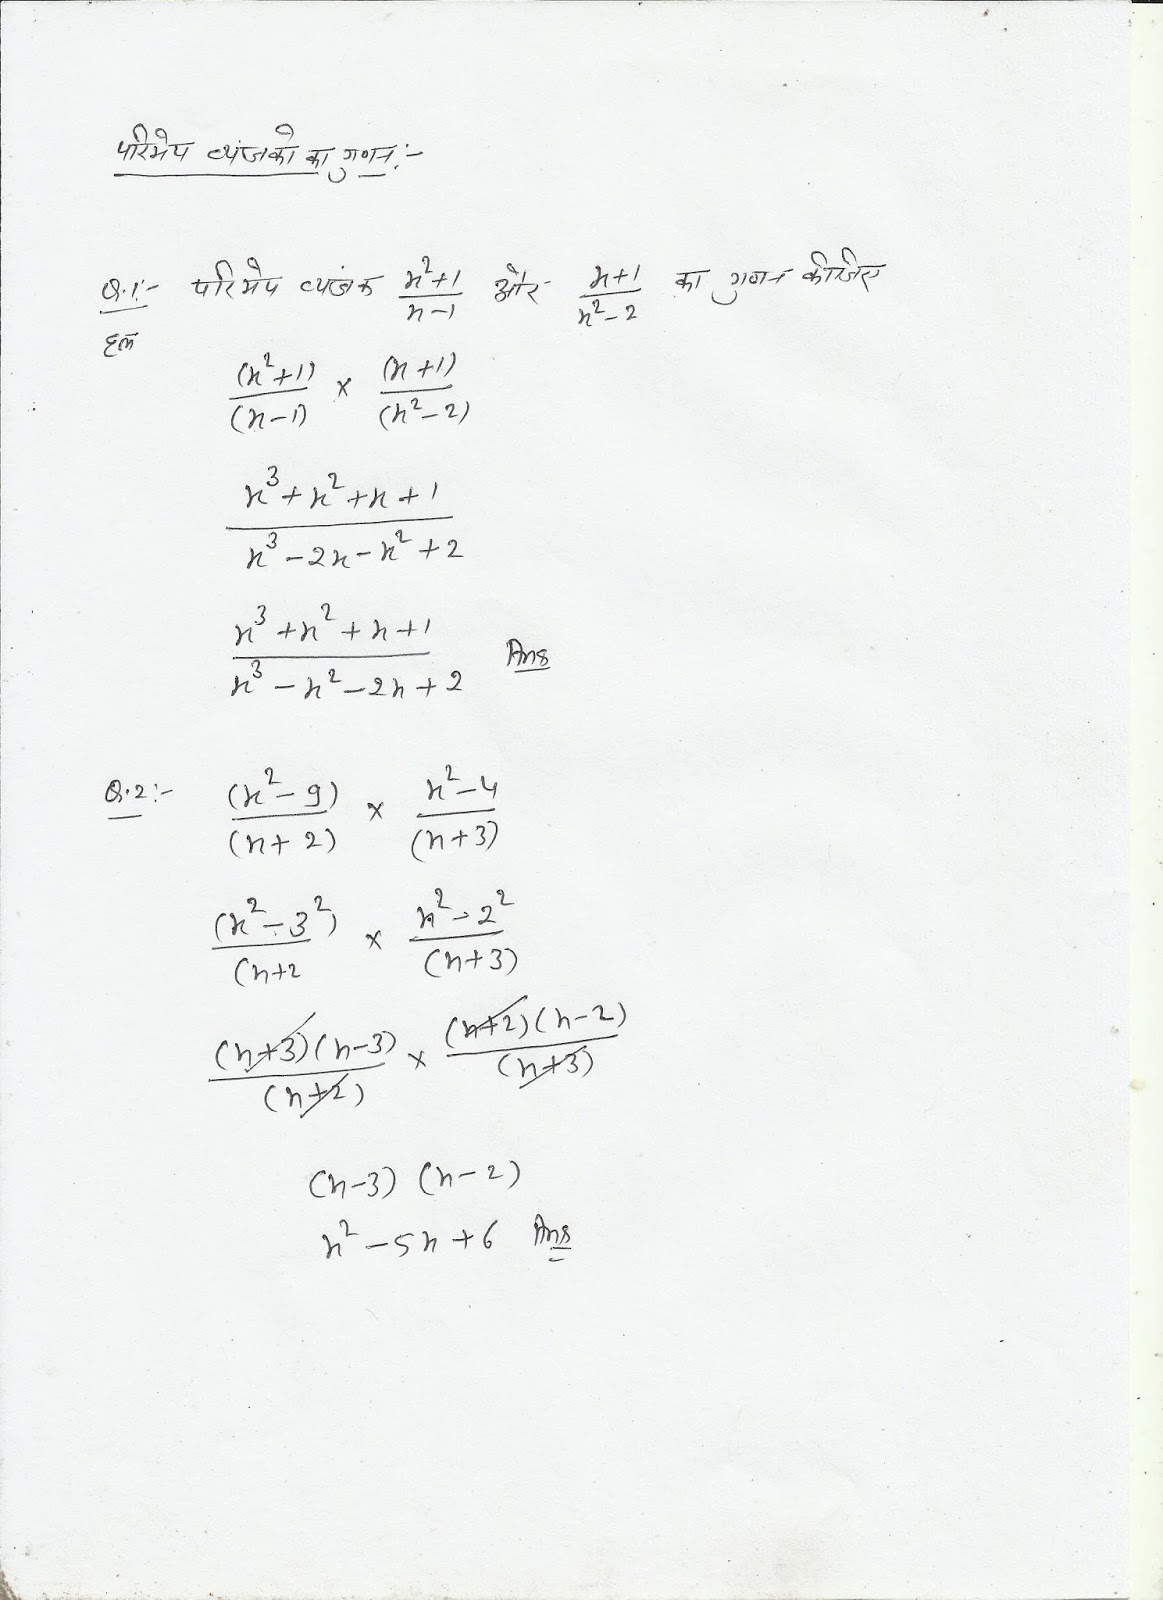 परिमेय व्यंजको का गुणन :-
Q.1:- परिमेय व्यंजक (x²+1)/(x-1) और (x+1)/(x²-2) का गुणन कीजिए
हल
(x²+1)/(x-1) × (x+1)/(x²-2)
(x³+x²+x+1)/(x³-2x-x²+2)
(x³+x²+x+1)/(x³-x²-2x+2) Ans
Q.2:- (x²-9)/(x+2) × (x²-4)/(x+3)
(x²-3²)/(x+2 × (x²-2²)/(x+3)
(x+3)(x-3)/(x+2) × (x+2)(x-2)/(x+3)
(x-3) (x-2)
x²-5x+6 Ans